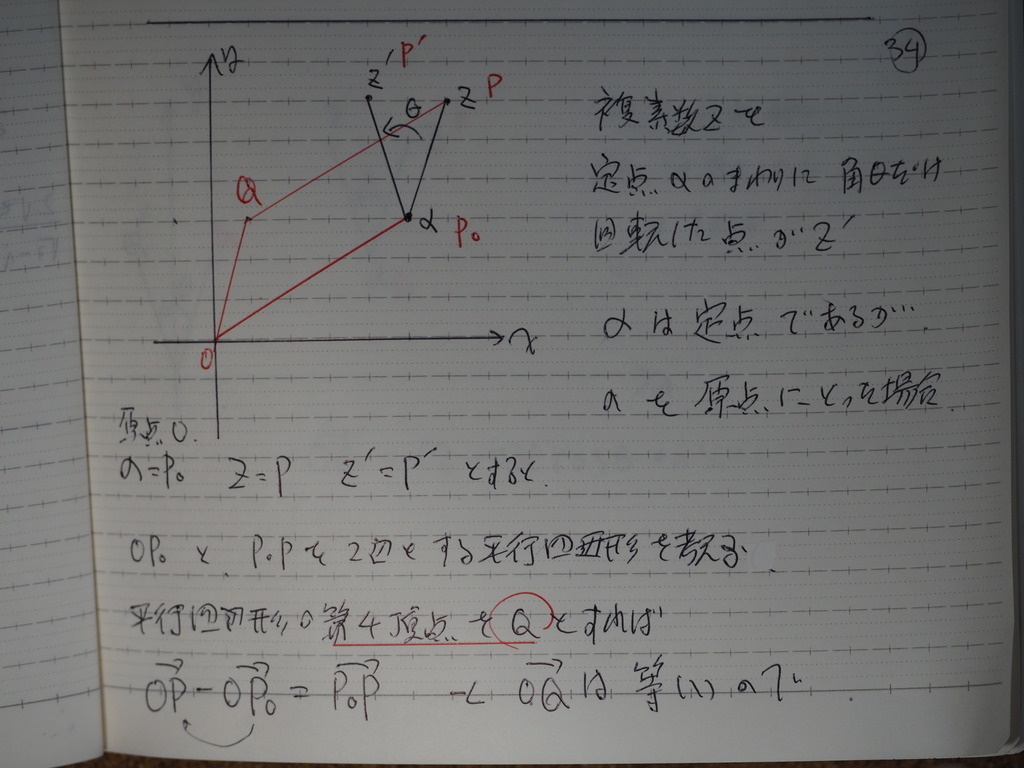 34
y
z' P'
z P
θ
Q
α P₀
O
x
複素数zを
定点αのまわりに角θだけ
回転した点がz'
αは定点であるが…
αを原点にとった場合
原点O.
α=P₀ z=P z'=P' とすると.
OP₀と P₀Pを2辺とする平行四辺形を考える.
平行四辺形の第4頂点をQとすれば
→OP-→OP₀=→P₀P と →OQは等しいので